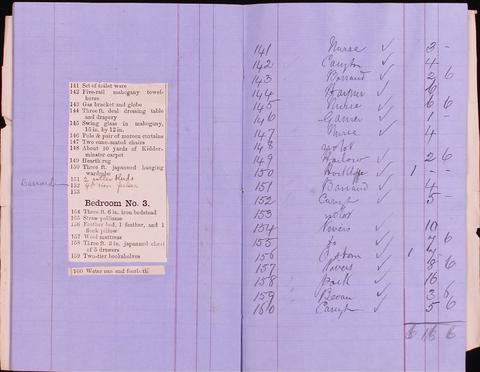 141 Set of toilet ware
142 Five-rail mahogany towel-
horse
143 Gas bracket and globe
144 Three ft. deal dressing table
and drapery
145 Swing glass in mahogany,
15 in. by 12 in.
146 Pole & pair of moreen curtains
147 Two cane-seated chairs
148 About 10 yards of Kidder-
minster carpet
149 Hearth rug
150 Three ft. japanned hanging
wardrobe
151 2 roller blinds
Barraud
152
153
Bedroom No. 3.
154 Three ft. 6 in. iron bedstead
155 Straw palliasse
156 Feather bed, 1 feather, and 1
flock pillow
157 Wool mattress
158 Three ft. 3 in. japanned chest
of 5 drawers
159 Two-tier bookshelves
160 Water can and footbath
141 Nurse 3 -
142 4 -
143 Barraud 2 6
144 6
145 Nurse 6 6
146 1 -
147 Nurse 4
148 no lot
149 Harlow 2 6
150 1 - -
151 Barraud 4
152 5 -
153 no lot
154 Rivers 10
155 Do 7 6
156 1
157 Rivers 8 6
158 16
159 Bevan 3 6
160 5 6
6 16 6